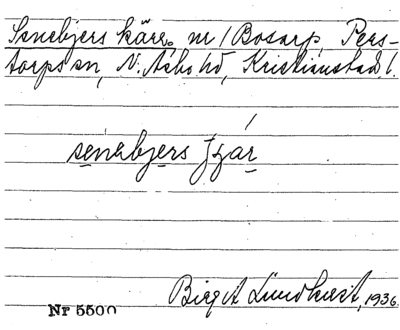 Senebjers kärr. nr 1 Bosarp, Pers-
torps sn, N. Åsbo hd, Kristianstad l.
senabjers
Birgit Lundkvist, 1936.
Nr 5500